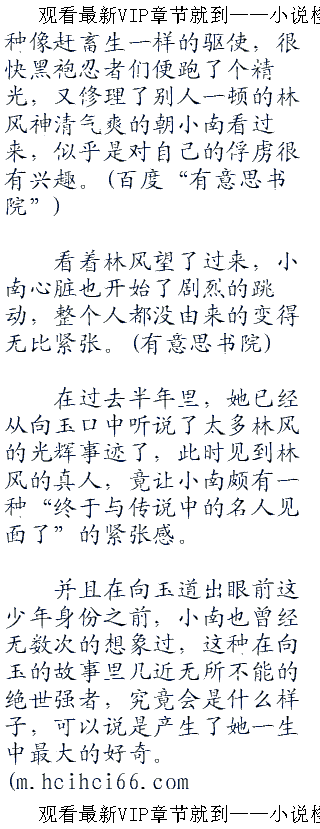 观看最新VIP章节就到——小说检
种像赶畜生一样的驱使，很
快黑袍忍者们便跑了个精
光，又修理了别人一顿的林
风神清气爽的朝小南看过
来，似乎是对自己的俘虏很
有兴趣。(百度“有意思书
院”)
看着林风望了过来，小
南心脏也开始了剧烈的跳
动，整个人都没由来的变得
无比紧张。(有意思书院)
在过去半年里，她已经
从向玉口中听说了太多林风
的光辉事迹了，此时见到林
风的真人，竟让小南颇有一
种“终于与传说中的名人见
面了”的紧张感。
并且在向玉道出眼前这
少年身份之前，小南也曾经
无数次的想象过，这种在向
玉的故事里几近无所不能的
绝世强者，究竟会是什么样
子，可以说是产生了她一生
中最大的好奇。
(m.hcihci66.com
观看最新VIP章节就到——小说检